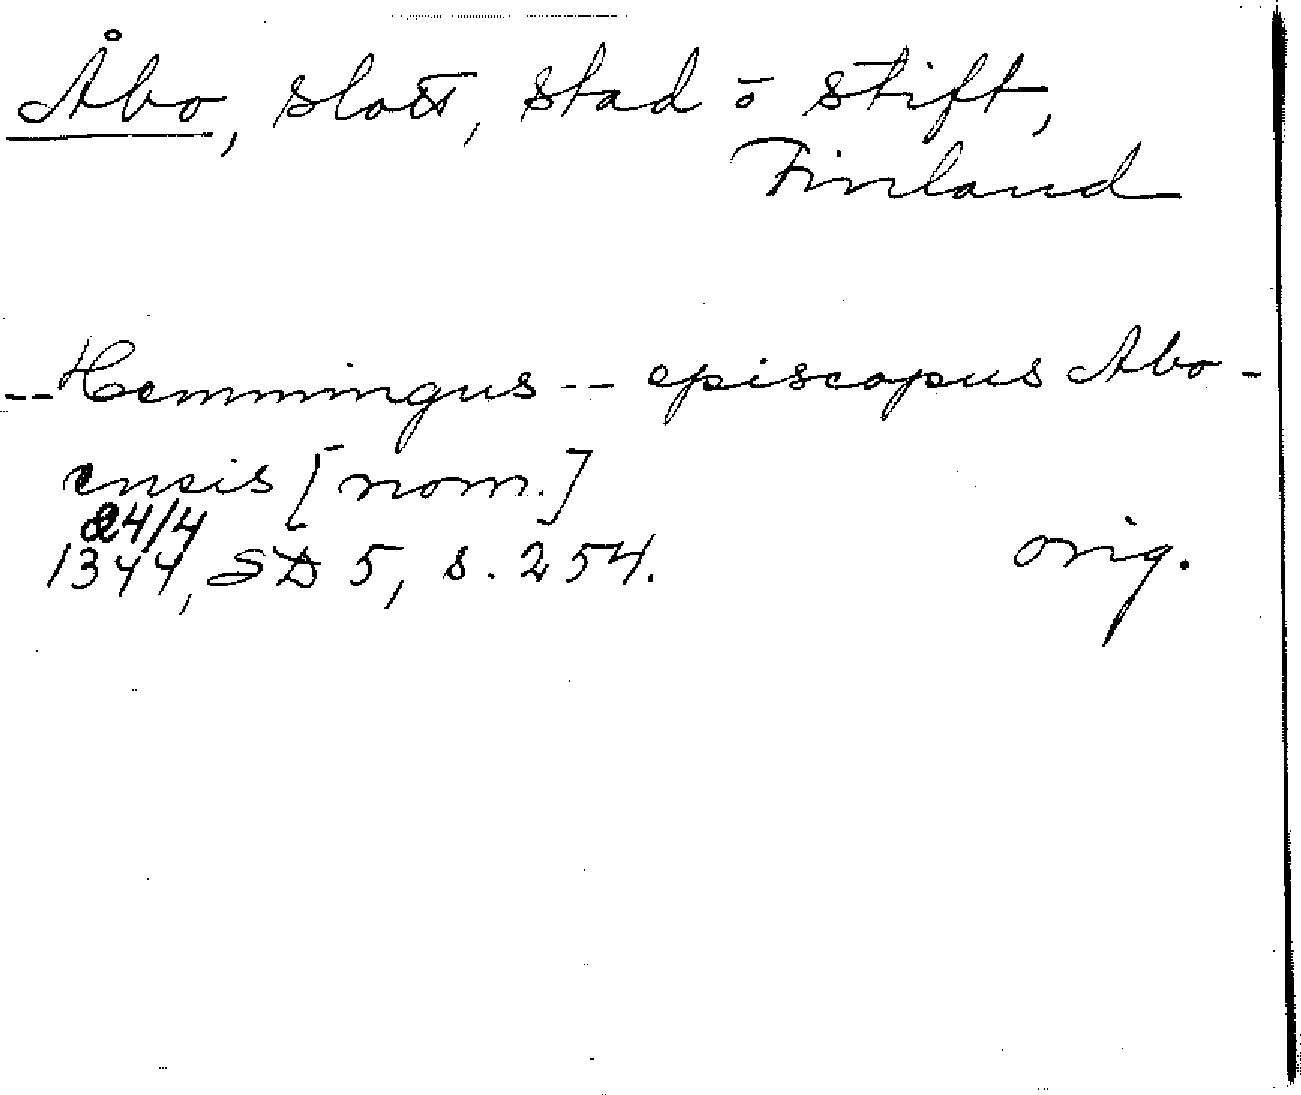 Åbo, slott, stad o stift,
Finland
-- Hemmingus -- episcopus Abo-
ensis [nom.]
24/4
1344, SD 5, s. 254.
orig.